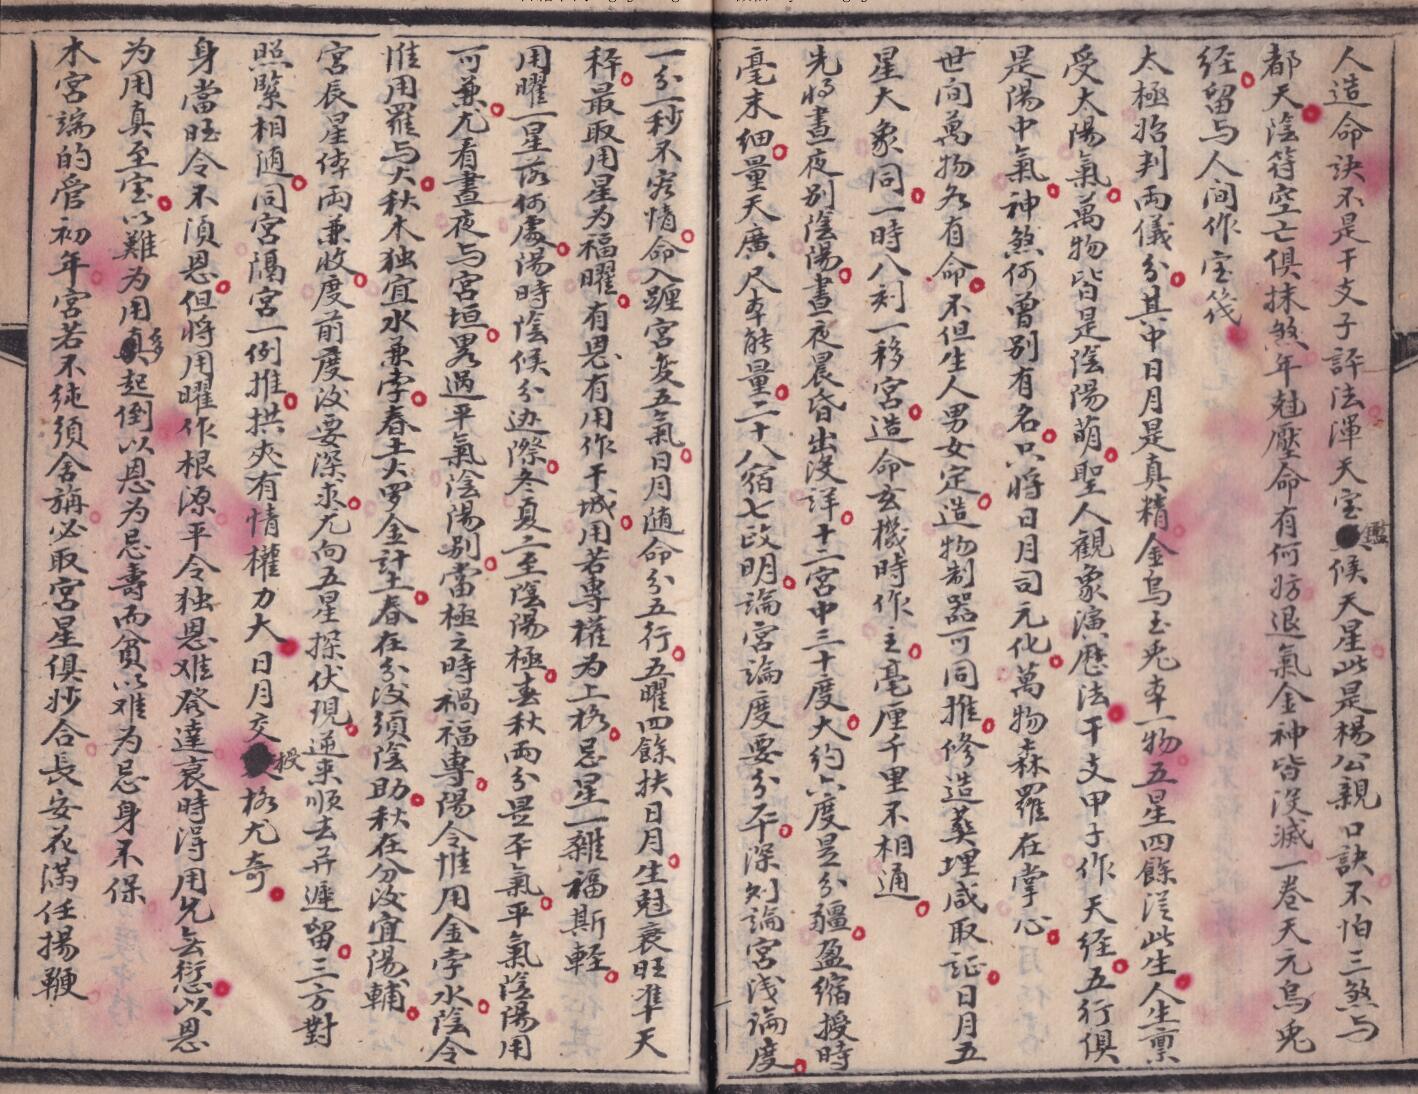 人造命訣不是干支子評法渾天宝鑑候天星此是楊公親口訣不怕三煞与
都天陰符空亡俱抹煞年尅壓命有何妨退氣金神皆沒滅一卷天元烏兎
经留与人间作宝筏
太極始判兩儀分其中日月是真精金烏玉兎本一物五星四餘従此生人生禀
受太陽氣萬物皆是陰陽萌聖人觀象演暦法干支甲子作天经五行俱
是陽中氣神煞何曾别有名只將日月司元化萬物森羅在掌心
世间萬物各有命不但生人男女定造物制器可同推修造𦵏埋咸取証日月五
星大象同一時八刻一移宮造命玄機時作主毫厘千里不相通
先將晝夜别陰陽晝夜晨昏出沒詳十二宮中三十度大约六度是分疆盈縮授時
毫末细量天廣尺本能量二十八宿七政明論宮論度要分不深則論宮浅論度
一分一秒不容情命入躔宮変五氣日月随命分五行五曜四餘扶日月生尅衰旺準天
秤最取用星为福曜有恩有用作干城用若專權为上格忌星一雜福斯輕
用曜一星落何處陽時陰候分边際冬夏二至陰陽極春秋兩分是平氣平氣陰陽用
可兼尤看晝夜与宮垣畧過平氣陰陽别當極之時禍福專陽令惟用金孛水陰令
惟用羅与火秋木独宜水兼孛春土火罗金計土春在分後須陰助秋在分後宜陽輔
宮辰星体兩兼收度前度後要深求尤向五星探伏現逆来順去并遲留三方對
照緊相随同宮隔宮一例推拱夾有情權力大日月交授格尤奇
身當旺令不須恩但將用曜作根源平令独恩难發達衰時得用尤無愆以恩
为用真至宝以難为用多起倒以恩为忌壽而貧以难为忌身不保
木宮端的管初年宮若不純須舍旃必取宮星俱妙合長安花滿任揚鞭